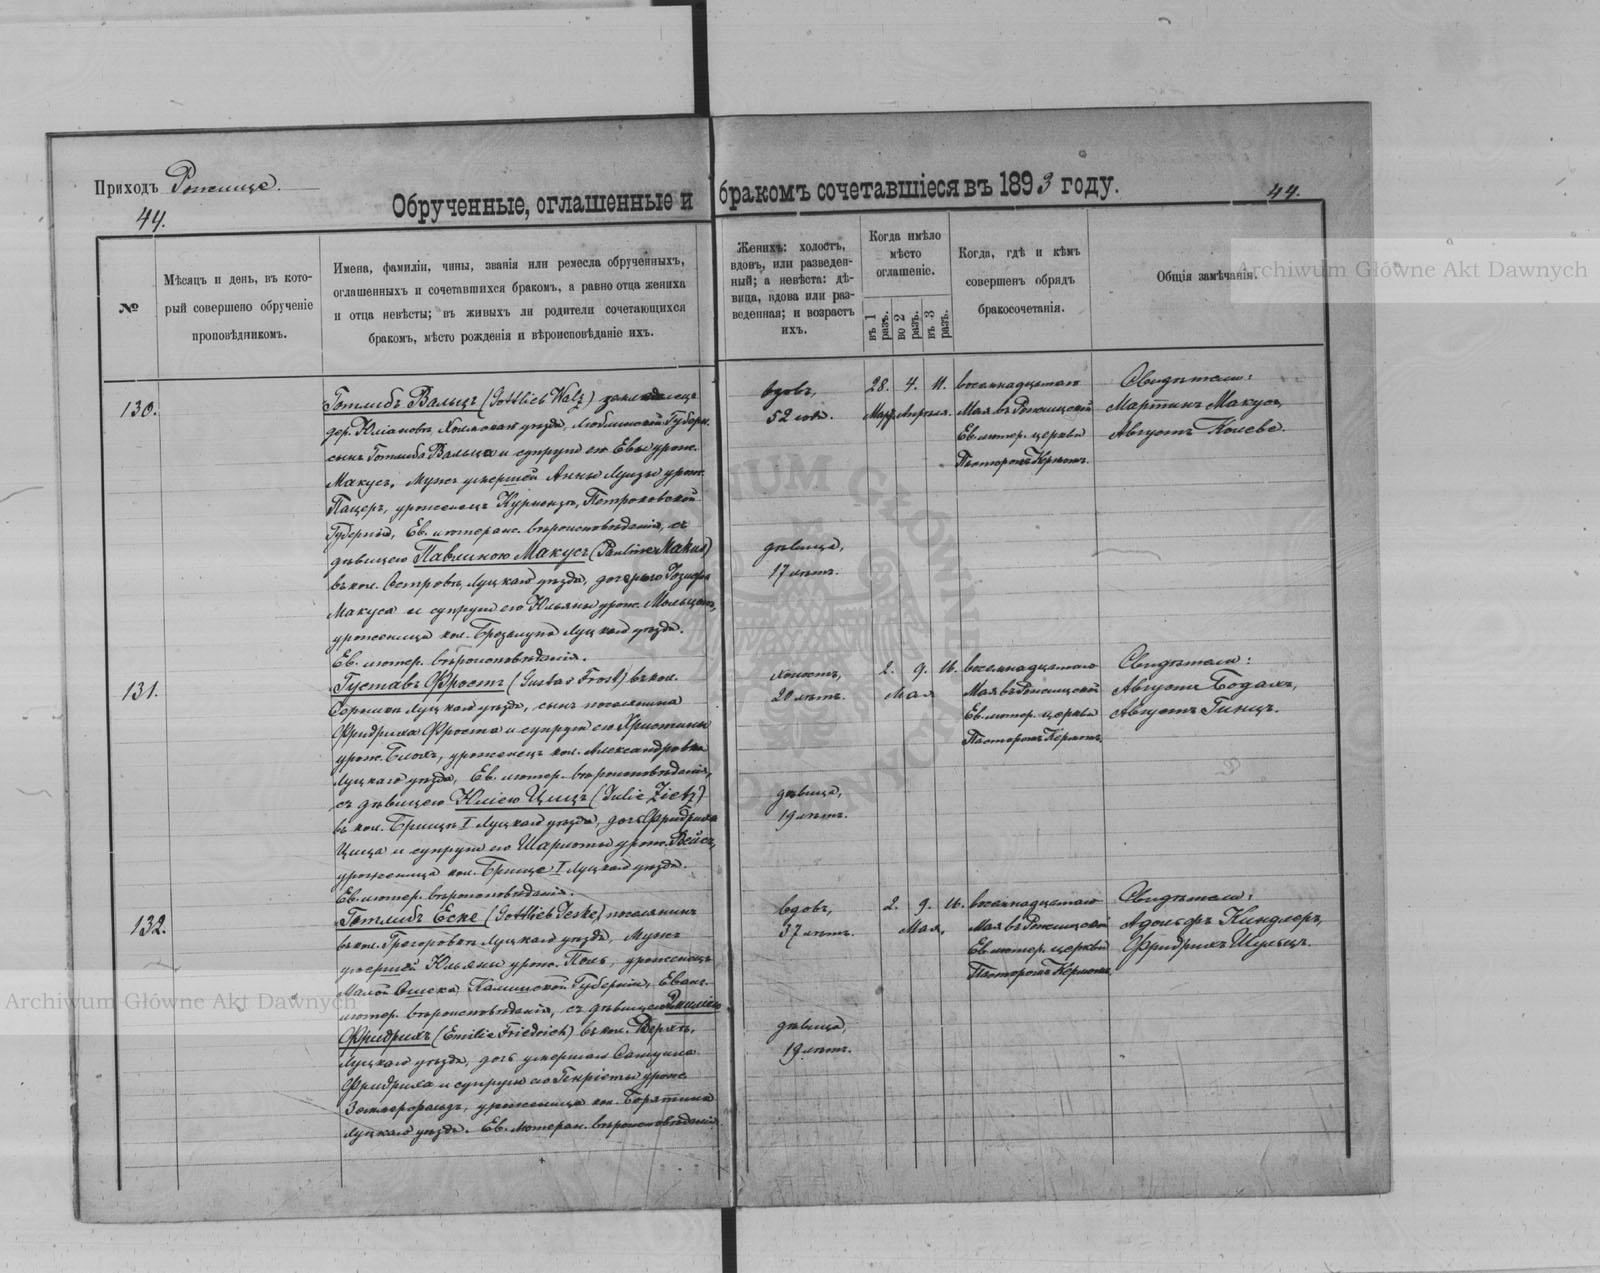 Приходъ Рожище.
44.
Обрученные, оглашенные и бракомъ сочетавшіеся въ 1893 году.
44.
Archiwum Główne Akt Dawnych
№
Мѣсяцъ и день, въ кото-
рый совершено обрученіе
проповѣдникомъ.
Имена, фамиліи, чины, званія или ремесла обрученныхъ,
оглашенныхъ и сочетавшихся бракомъ, а равно отца жениха
и отца невѣсты; въ живыхъ ли родители сочетающихся
бракомъ, мѣсто рожденія и вѣроисповѣданіе ихъ.
Женихъ: холостъ,
вдовъ, или разведен-
ный; а невѣста: дѣ-
вица, вдова или раз-
веденная; и возрастъ
ихъ.
Когда имѣло
мѣсто
оглашеніе.
въ 1 разъ.
во 2 разъ.
въ 3 разъ.
Когда, гдѣ и кѣмъ
совершенъ обрядъ
бракосочетанія.
Общія замѣчанія.
130.
Готлибъ Вальцъ (Gottlieb Walz)
дер. Юліановъ, Холмскаго уѣзда, Люблинской Губерн.
сынъ Готлиба Вальца и супруги его Евы урож.
Макусъ, мужъ умершей Анны Луизы урож.
Пацеръ, уроженецъ Петроковской
Губерніи, Ев. лютеранс. вѣроисповѣданія, съ
дѣвицею Павлиною Макусъ (Pauline Makus)
въ кол. Островъ, Луцкаго уѣзда, дочерью
Макуса и супруги его Юльяны урож.
уроженица кол. Луцкаго уѣзда.
Ев. лютер. вѣроисповѣданія.
вдовъ,
52 годъ.
дѣвица,
17 лѣтъ.
28. 4. 11.
Мар. Апрѣля.
восемнадцатаго
Мая въ Рожищской
Ев. лютер. церкви
Пасторомъ Кермомъ.
Свидѣтели:
Мартинъ Макусъ,
Августъ
131.
Густавъ Фростъ (Gustav Frost) въ кол.
Луцкаго уѣзда, сынъ поселянина
Фридриха Фроста и супруги его Христины
урож. уроженецъ кол. Александровка
Луцкаго уѣзда, Ев. лютер. вѣроисповѣданія,
съ дѣвицею Юліею Цицъ (Julie Zietz)
въ кол. Брище I Луцкаго уѣзда, дочь Фридриха
Цица и супруги его Шарлоты урож. Вейсъ,
уроженица кол. Брище I Луцкаго уѣзда.
Ев. лютер. вѣроисповѣданія.
холостъ,
20 лѣтъ.
дѣвица,
19 лѣтъ.
2. 9. 16.
Мая
восемнадцатаго
Мая въ Рожищской
Ев. лютер. церкви
Пасторомъ Кермомъ.
Свидѣтели:
Августъ
Августъ
132.
Готлибъ Еске (Gottlieb Jeske) поселянинъ
въ кол. Луцкаго уѣзда, Мужъ
умершей Юльяны урож. уроженецъ
Калишской Губерніи, Еванг.
лютер. вѣроисповѣданія, съ дѣвицею Эмиліею
Фридрихъ (Emilie Friedrich) въ кол.
Луцкаго уѣзда, дочь умершаго Самуила
Фридриха и супруги его Генріеты урож.
уроженица кол. Борятина
Луцкаго уѣзда. Ев. лютеран. вѣроисповѣданія.
вдовъ,
37 лѣтъ.
дѣвица,
19 лѣтъ.
2. 9. 16.
Мая.
восемнадцатаго
Мая въ Рожищской
Ев. лютер. церкви
Пасторомъ Кермомъ.
Свидѣтели:
Адольфъ Киндлеръ,
Фридрихъ Шульцъ.
Archiwum Główne Akt Dawnych